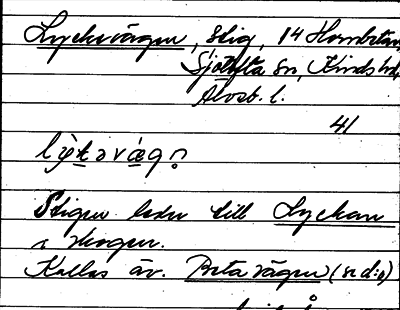 Lyckevägen, stig, 14 Hornbetan,
Sjötofta sn, Kinds hd,
Älvsb. l.
41
Stigen leder till Lyckan
i skogen.
Kallas äv. Betavägen (se d:o)